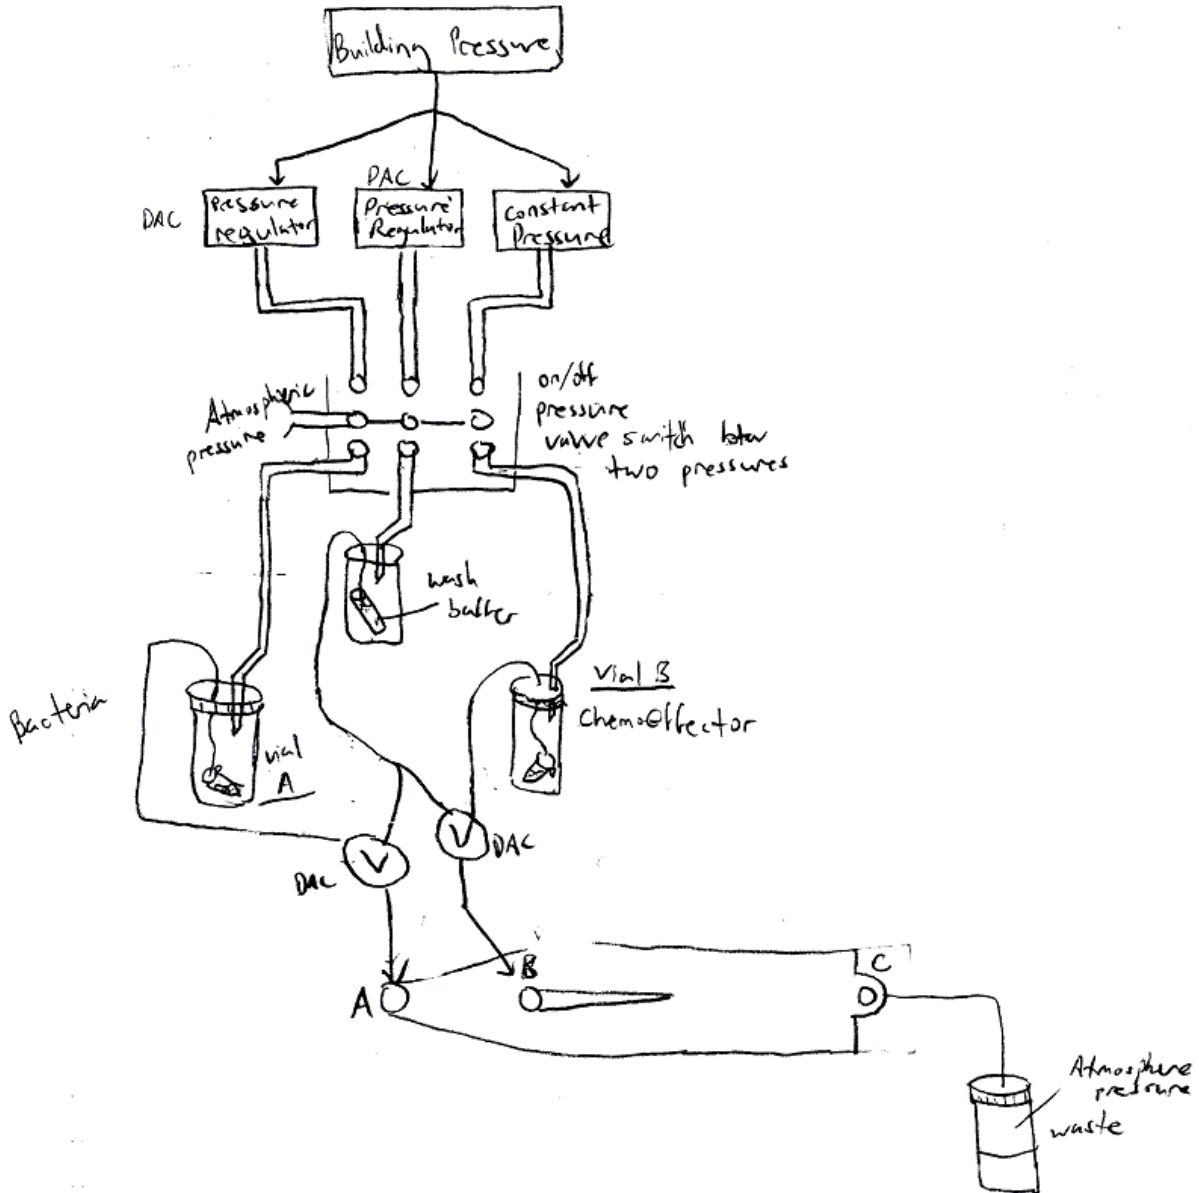 Building Pressure
DAC
DAC
Pressure
regulator
Pressure
Regulator
Constant
Pressure
Atmospheric
pressure
on/off
pressure
valve switch btw
two pressures
wash
buffer
Vial B
ChemoEffector
Bacteria
vial
A
V
V
DAC
DAC
A
B
C
Atmosphere
pressure
waste